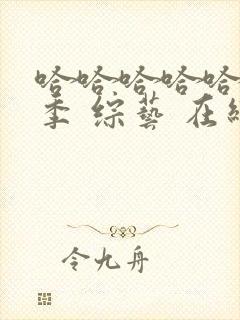 哈哈哈哈哈
季 综艺 在
令九舟